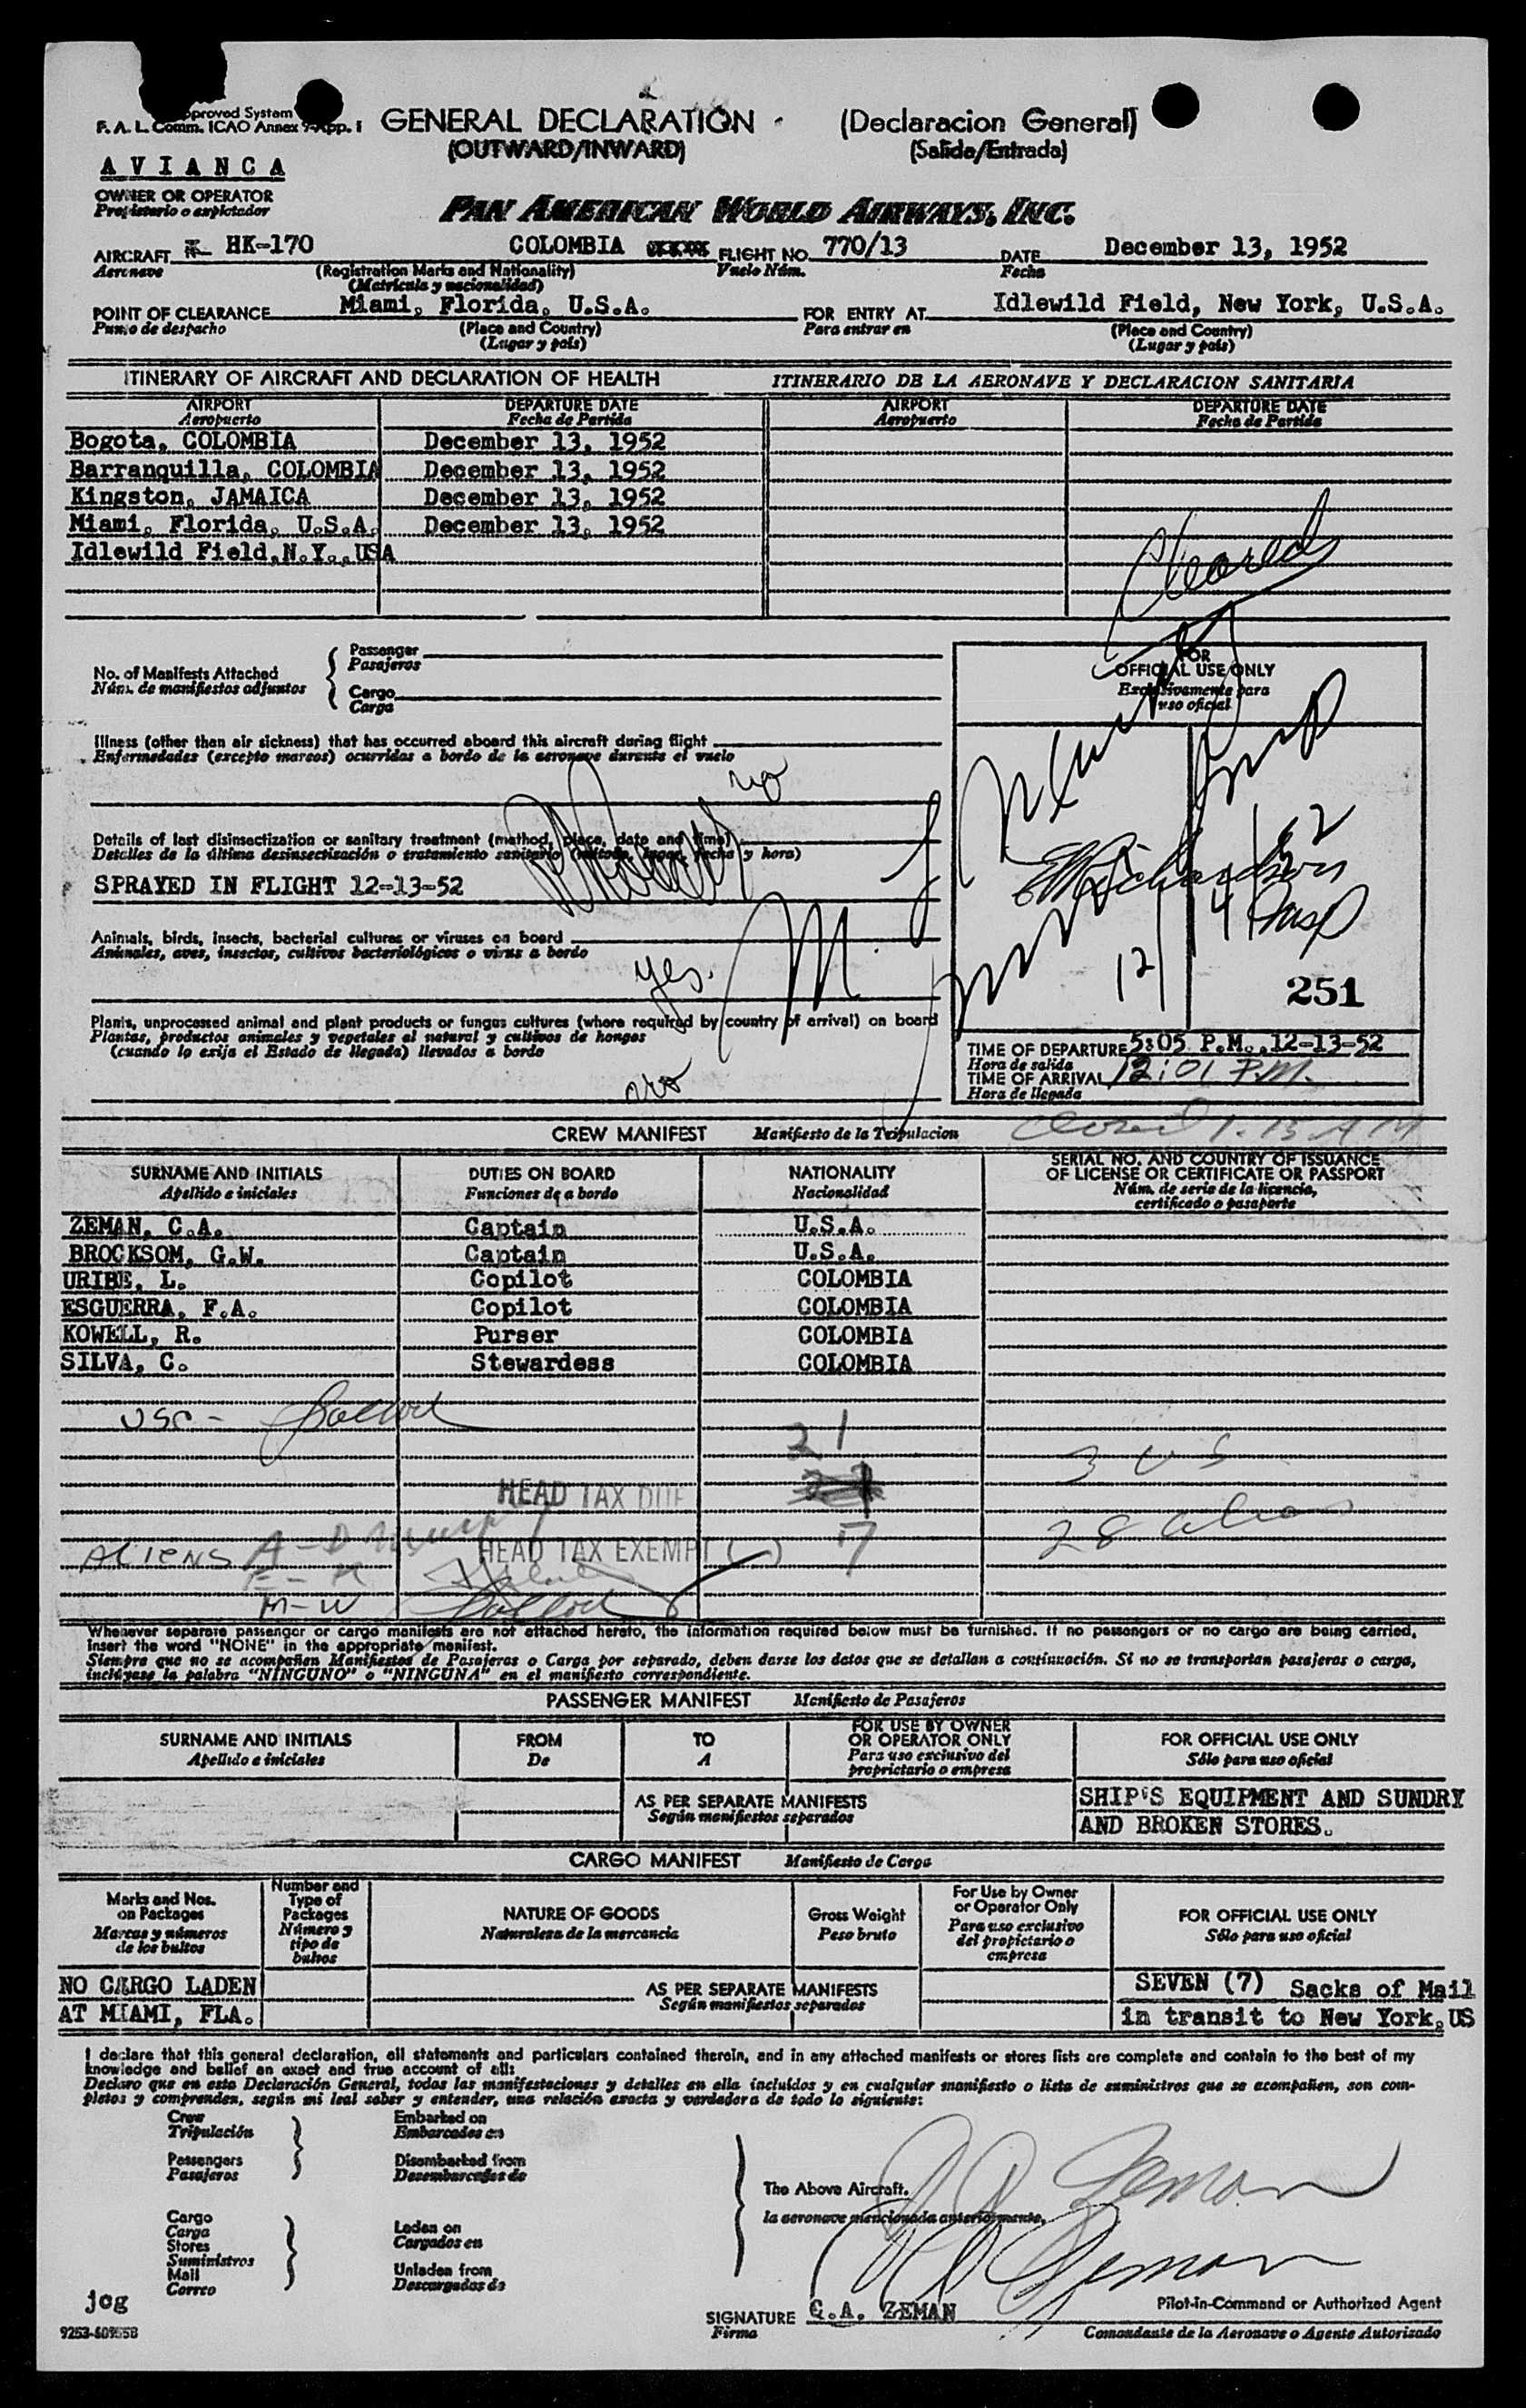 pproved System
F. A. L. Comm. ICAO Annex 9-App. 1
GENERAL DECLARATION - (Declaracion General)
(OUTWARD/INWARD) (Salida/Entrada)
AVIANCA
OWNER OR OPERATOR
Propietario o explotador
PAN AMERICAN WORLD AIRWAYS, INC.
AIRCRAFT HK-170 COLOMBIA FLIGHT NO. 770/13 DATE December 13, 1952
Aeronave (Registration Marks and Nationality) Vuelo Núm. Fecha
(Matrícula y nacionalidad)
POINT OF CLEARANCE Miami, Florida, U.S.A. FOR ENTRY AT Idlewild Field, New York, U.S.A.
Punto de despacho (Place and Country) Para entrar en (Place and Country)
(Lugar y país) (Lugar y país)
ITINERARY OF AIRCRAFT AND DECLARATION OF HEALTH ITINERARIO DE LA AERONAVE Y DECLARACION SANITARIA
AIRPORT DEPARTURE DATE AIRPORT DEPARTURE DATE
Aeropuerto Fecha de Partida Aeropuerto Fecha de Partida
Bogota, COLOMBIA December 13, 1952
Barranquilla, COLOMBIA December 13, 1952
Kingston, JAMAICA December 13, 1952
Miami, Florida, U.S.A. December 13, 1952
Idlewild Field,N.Y.,USA
Cleared
No. of Manifests Attached
Núm. de manifiestos adjuntos
Passenger
Pasajeros
Cargo
Carga
FOR
OFFICIAL USE ONLY
Exclusivamente para
uso oficial
Illness (other than air sickness) that has occurred aboard this aircraft during flight
Enfermedades (excepto mareos) ocurridas a bordo de la aeronave durante el vuelo
no
Details of last disinsectization or sanitary treatment (method, place, date and time)
Detalles de la última desinsectización o tratamiento sanitario (método, lugar, fecha y hora)
SPRAYED IN FLIGHT 12-13-52
EW Richardson
Insp
12/14/52
251
Animals, birds, insects, bacterial cultures or viruses on board
Animales, aves, insectos, cultivos bacteriológicos o virus a bordo
yes.
Plants, unprocessed animal and plant products or fungus cultures (where required by country of arrival) on board
Plantas, productos animales y vegetales al natural y cultivos de hongos
(cuando lo exija el Estado de llegada) llevados a bordo
no
TIME OF DEPARTURE 5:05 P.M., 12-13-52
Hora de salida
TIME OF ARRIVAL 12:01 P.M.
Hora de llegada
Closed 1.15 AM
CREW MANIFEST Manifiesto de la Tripulacion
SURNAME AND INITIALS DUTIES ON BOARD NATIONALITY SERIAL NO. AND COUNTRY OF ISSUANCE
OF LICENSE OR CERTIFICATE OR PASSPORT
Apellido e iniciales Funciones de a bordo Nacionalidad Núm. de serie de la licencia,
certificado o pasaporte
ZEMAN, C.A. Captain U.S.A.
BROCKSOM, G.W. Captain U.S.A.
URIBE, L. Copilot COLOMBIA
ESGUERRA, F.A. Copilot COLOMBIA
KOWELL, R. Purser COLOMBIA
SILVA, C. Stewardess COLOMBIA
USC -
21
3 US
HEAD TAX DUE
28 aliens
ALIENS A-D
HEAD TAX EXEMPT ( ) 17
E-K
M-W
Whenever separate passenger or cargo manifests are not attached hereto, the information required below must be furnished. If no passengers or no cargo are being carried,
insert the word "NONE" in the appropriate manifest.
Siempre que no se acompañen Manifiestos de Pasajeros o Carga por separado, deben darse los datos que se detallan a continuación. Si no se transportan pasajeros o carga,
inclúyase la palabra "NINGUNO" o "NINGUNA" en el manifiesto correspondiente.
PASSENGER MANIFEST Manifiesto de Pasajeros
SURNAME AND INITIALS FROM TO FOR USE BY OWNER
OR OPERATOR ONLY FOR OFFICIAL USE ONLY
Apellido e iniciales De A Para uso exclusivo del
proprietario o empresa Sólo para uso oficial
AS PER SEPARATE MANIFESTS SHIP'S EQUIPMENT AND SUNDRY
Según manifiestos separados AND BROKEN STORES.
CARGO MANIFEST Manifiesto de Carga
Marks and Nos.
on Packages
Marcas y números
de los bultos
Number and
Type of
Packages
Número y
tipo de
bultos
NATURE OF GOODS
Naturaleza de la mercancia
Gross Weight
Peso bruto
For Use by Owner
or Operator Only
Para uso exclusivo
del propietario o
empresa
FOR OFFICIAL USE ONLY
Sólo para uso oficial
NO CARGO LADEN AS PER SEPARATE MANIFESTS SEVEN (7) Sacks of Mail
AT MIAMI, FLA. Según manifiestos separados in transit to New York, US
I declare that this general declaration, all statements and particulars contained therein, and in any attached manifests or stores lists are complete and contain to the best of my
knowledge and belief an exact and true account of all:
Declaro que en esta Declaración General, todas las manifestaciones y detalles en ella incluidos y en cualquier manifiesto o lista de suministros que se acompañen, son com-
pletos y comprenden, según mi leal saber y entender, una relación exacta y verdadera de todo lo siguiente:
Crew
Tripulación
Passengers
Pasajeros
Embarked on
Embarcados en
Disembarked from
Desembarcados de
Cargo
Carga
Stores
Suministros
Mail
Correo
Laden on
Cargados en
Unladen from
Descargados de
The Above Aircraft.
la aeronave mencionada anteriormente.
CA Zeman
CA Zeman
jog
SIGNATURE C.A. ZEMAN Pilot-in-Command or Authorized Agent
Firma Comandante de la Aeronave o Agente Autorizado